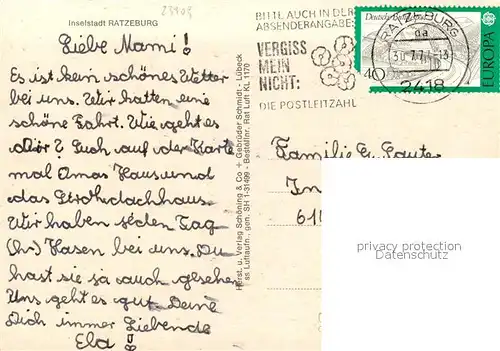 Inselstadt RATZEBURG
Liebe Mami!
Es ist kein schönes Wetter
bei uns. Wir hatten eine
schöne Fahrt. Wie geht es
Dir? Such auf der Karte
mal Omas Haus und
das Strohdachhaus.
Wir haben jeden Tag
(hr) Hasen bei uns. Du
hast sie ja auch gesehen.
Uns geht es gut. Deine
Dich immer Liebende
Ela
Herst. u. Verlag Schöning & Co + Gebrüder Schmidt - Lübeck
ss Luftaufn. gen. SH 1-31499 - Bestellnr. Rat Luft KL 1170
BITTE AUCH IN DER
ABSENDERANGABE:
VERGISS
MEIN
NICHT:
DIE POSTLEITZAHL
RATZEBURG
da
2418
Deutsche Bundespost
40
EUROPA
Familie
privacy protection
Datenschutz